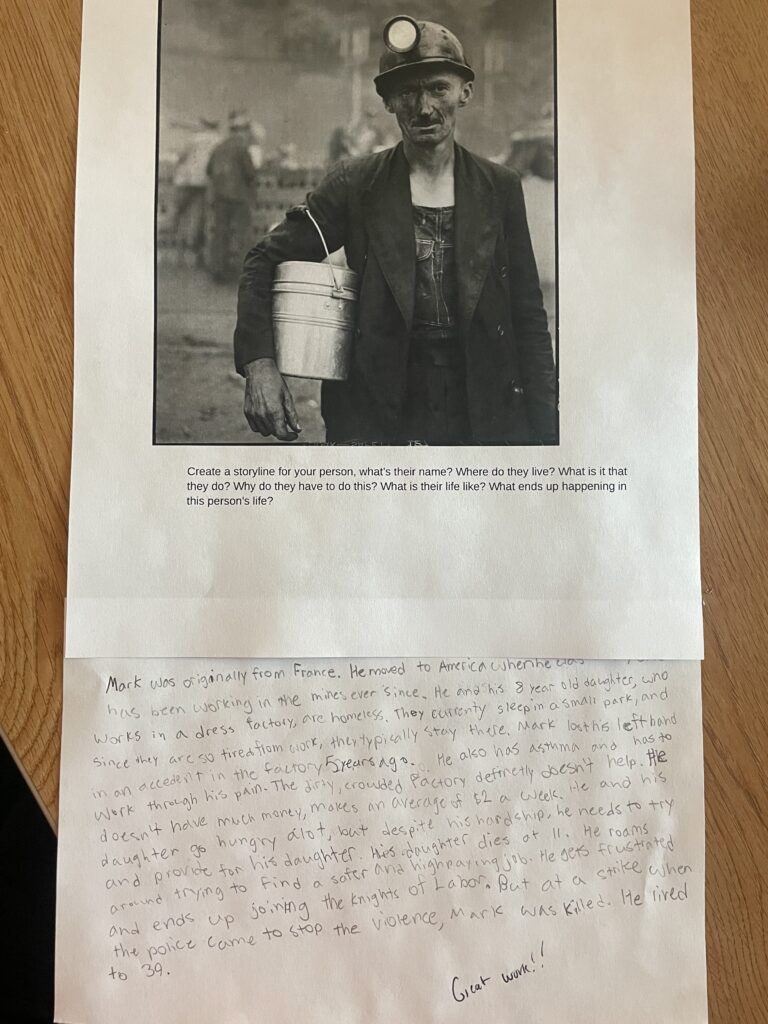 Create a storyline for your person, what's their name? Where do they live? What is it that
they do? Why do they have to do this? What is their life like? What ends up happening in
this person's life?
Mark was originally from France. He moved to America when he was
has been working in the mines ever since. He and his 8 year old daughter, who
works in a dress factory, are homeless. They currently sleep in a small park, and
since they are so tired from work, they typically stay there. Mark lost his left hand
in an accedent in the factory 5 years ago. He also has asthma and has to
work through his pain. The dirty, crowded factory definetly doesn't help. He
doesn't have much money, makes an average of £2 a week. He and his
daughter go hungry alot, but despite his hardship, he needs to try
and provide for his daughter. His daughter dies at 11. He roams
around trying to find a safer and high paying job. He gets frustrated
and ends up joining the Knights of Labor. But at a strike when
the police came to stop the violence, Mark was killed. He lived
to 39.
Great work!!